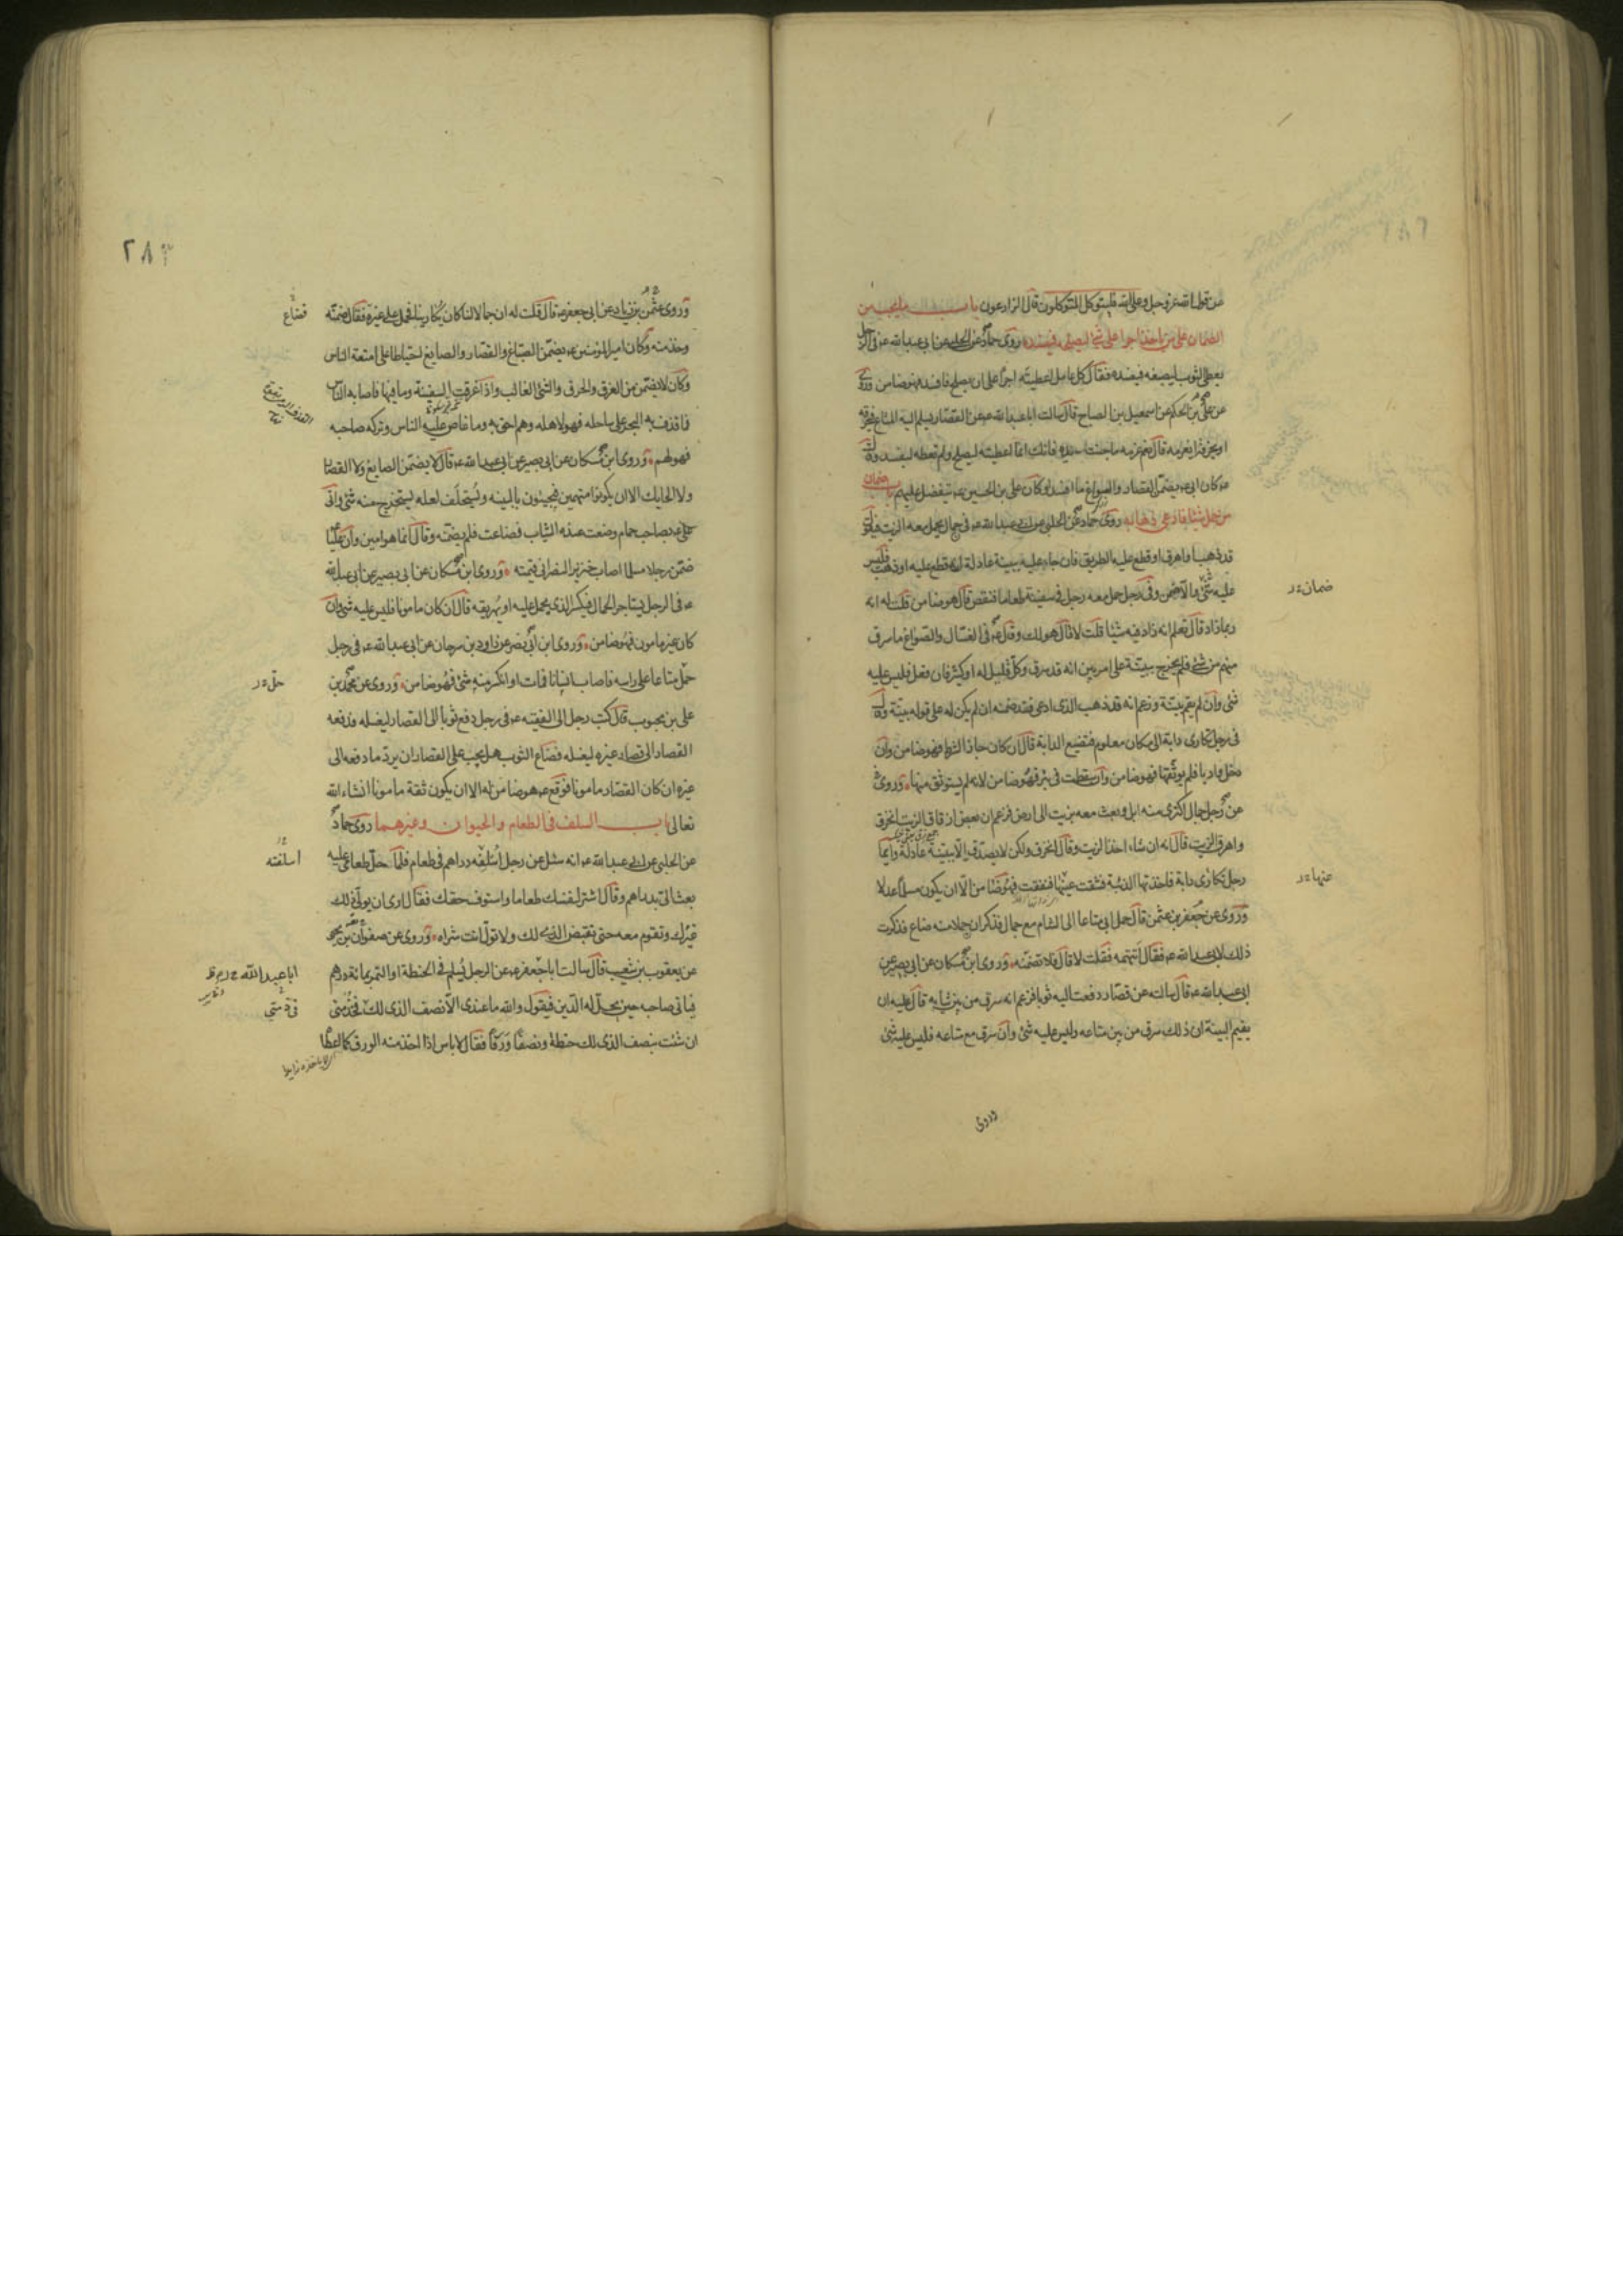 عن قول الله عز وجل وعلى الله فليتوكل المتوكلون قال الزارعون باب ما يجب من
الضمان على من ياخذ اجرا على شئ ليصلحه فيفسده روى حماد عن الحلبي عن ابي عبد الله ع في الرجل
يعطى الثوب ليصبغه فيفسده فقال كل عامل اعطيته اجرا على ان يصلح فافسد فهو ضامن وروى
عن علي بن الحكم عن اسمعيل بن الصباح قال سالت ابا عبد الله ع عن القصار يسلم اليه المتاع فيحرقه
او يخرقه ايغرمه قال نعم غرمه ما جنت يده فانك انما اعطيته ليصلح ولم تعطه ليفسد وقال
ع كان ابي ع يضمن القصار والصواغ ما افسدا وكان علي بن الحسين ع يتفضل عليهم باب ضمان
من حمل شيئا فادعى ذهابه روى حماد عن الحلبي عن ابي عبد الله ع في جمال يحمل معه الزيت فيقول
قد ذهب او اهرق او قطع عليه الطريق فان جاء عليه ببينة عادلة انه قطع عليه او ذهب فليس
عليه شئ والا ضمن وفي رجل حمل معه رجل في سفينة طعاما فنقص قال هو ضامن قلت له انه
ربما زاد قال تعلم انه زاد فيه شيئا قلت لا قال هو لك وقال ع في الغسال والصواغ ما سرق
منهم من شئ فلم يخرج ببينة على امر بين انه قد سرق وكل قليل له او كثير فان فعل فليس عليه
شئ وان لم يقم بينة وزعم انه قد ذهب الذي ادعى فقد ضمنه ان لم يكن له على قوله بينة وقال
في رجل تكارى دابة الى مكان معلوم فتضيع الدابة قال ان كان جاز الشرط فهو ضامن وان
دخل واديا فلم يوثقها فهو ضامن وان سقطت في بئر فهو ضامن لانه لم يستوثق منها وروى
عن رجل جمال اكترى منه ابل وبعث معه بزيت الى ارض فزعم ان بعض ازقاق الزيت انخرق
واهرق الزيت قال انه ان شاء اخذ الزيت وقال انخرق ولكن لا يصدق الا ببينة عادلة وايما
رجل تكارى دابة فاخذتها الذئبة فشقت عينها فنفقت فهو ضامن الا ان يكون مسلما عدلا
وروى عن جعفر بن عثمن قال حمل ابي متاعا الى الشام مع جمال فذكر ان حملا منه ضاع فذكرت
ذلك لابي عبد الله ع فقال اتتهمه فقلت لا قال فلا تضمنه وروى ابن مسكان عن ابي بصير عن
ابي عبد الله ع قال سالته عن قصار دفعت اليه ثوبا فزعم انه سرق من بين ثيابه قال عليه ان
يقيم البينة ان ذلك سرق من بين متاعه وليس عليه شئ وان سرق مع متاعه فليس عليه شئ
وروى
ضمان
عنها
٢٨٣
وروى عثمن بن زياد عن ابي جعفر ع قال قلت له ان جمالا لنا كان يكارينا فحمل على غيره فقال ضمنه
وخذ منه وكان امير المؤمنين ع يضمن الصباغ والقصار والصايغ احتياطا على امتعة الناس
وكان لا يضمن من الغرق والحرق والشئ الغالب واذا غرقت السفينة وما فيها فاصابه الناس
فما قذف به البحر على ساحله فهو لاهله وهم احق به وما غاص عليه الناس وتركه صاحبه
فهو لهم وروى ابن مسكان عن ابي بصير عن ابي عبد الله ع قال لا يضمن الصايغ ولا القصار
ولا الحايك الا ان يكونوا متهمين فيجيئون بالبينه ويستحلف لعله يستخرج منه شئ واتى
علي ع بصاحب حمام وضعت عنده الثياب فضاعت فلم يضمنه وقال انما هو امين وان عليا
ضمن رجلا مسلما اصاب خنزير النصراني قيمته وروى ابن مسكان عن ابي بصير عن ابي عبد الله
ع في الرجل يستاجر الحمال فيكسر الذي يحمل عليه او يهريقه قال ان كان مامونا فليس عليه شئ وان
كان غير مامون فهو ضامن وروى ابن ابي نصر عن داود بن سرحان عن ابي عبد الله ع في رجل
حمل متاعا على راسه فاصاب انسانا فمات او انكسر منه شئ فهو ضامن وروى عن محمد بن
علي بن محبوب قال كتب رجل الى الفقيه ع في رجل دفع ثوبا الى القصار ليغسله فدفعه
القصار الى قصار غيره ليغسله فضاع الثوب هل يجب على القصار ان يرد ما دفعه الى
غيره ان كان القصار مامونا فوقع ع هو ضامن له الا ان يكون ثقة مامونا انشاء الله
تعالى باب السلف في الطعام والحيوان وغيرهما روى حماد
عن الحلبي عن ابي عبد الله ع انه سئل عن رجل اسلفه دراهم في طعام فلما حل طعامي عليه
بعث الي بدراهم وقال اشتر لنفسك طعاما واستوف حقك فقال ارى ان يولي ذلك
غيرك وتقوم معه حتى تقبض الذي لك ولا تول انت شراه وروى عن صفوان بن يحيى
عن يعقوب بن شعيب قال سالت ابا جعفر ع عن الرجل يسلم في الحنطة او التمر بمائة درهم
فياتي صاحبه حين يحل له الدين فيقول والله ما عندي الا نصف الذي لك فخذ مني
ان شئت بنصف الذي لك حنطة ونصفا ورقا فقال لا باس اذا اخذ منه الورق كما اعطاه
فضاع
حل
اسلفته
ابا عبد الله
في ذمتي